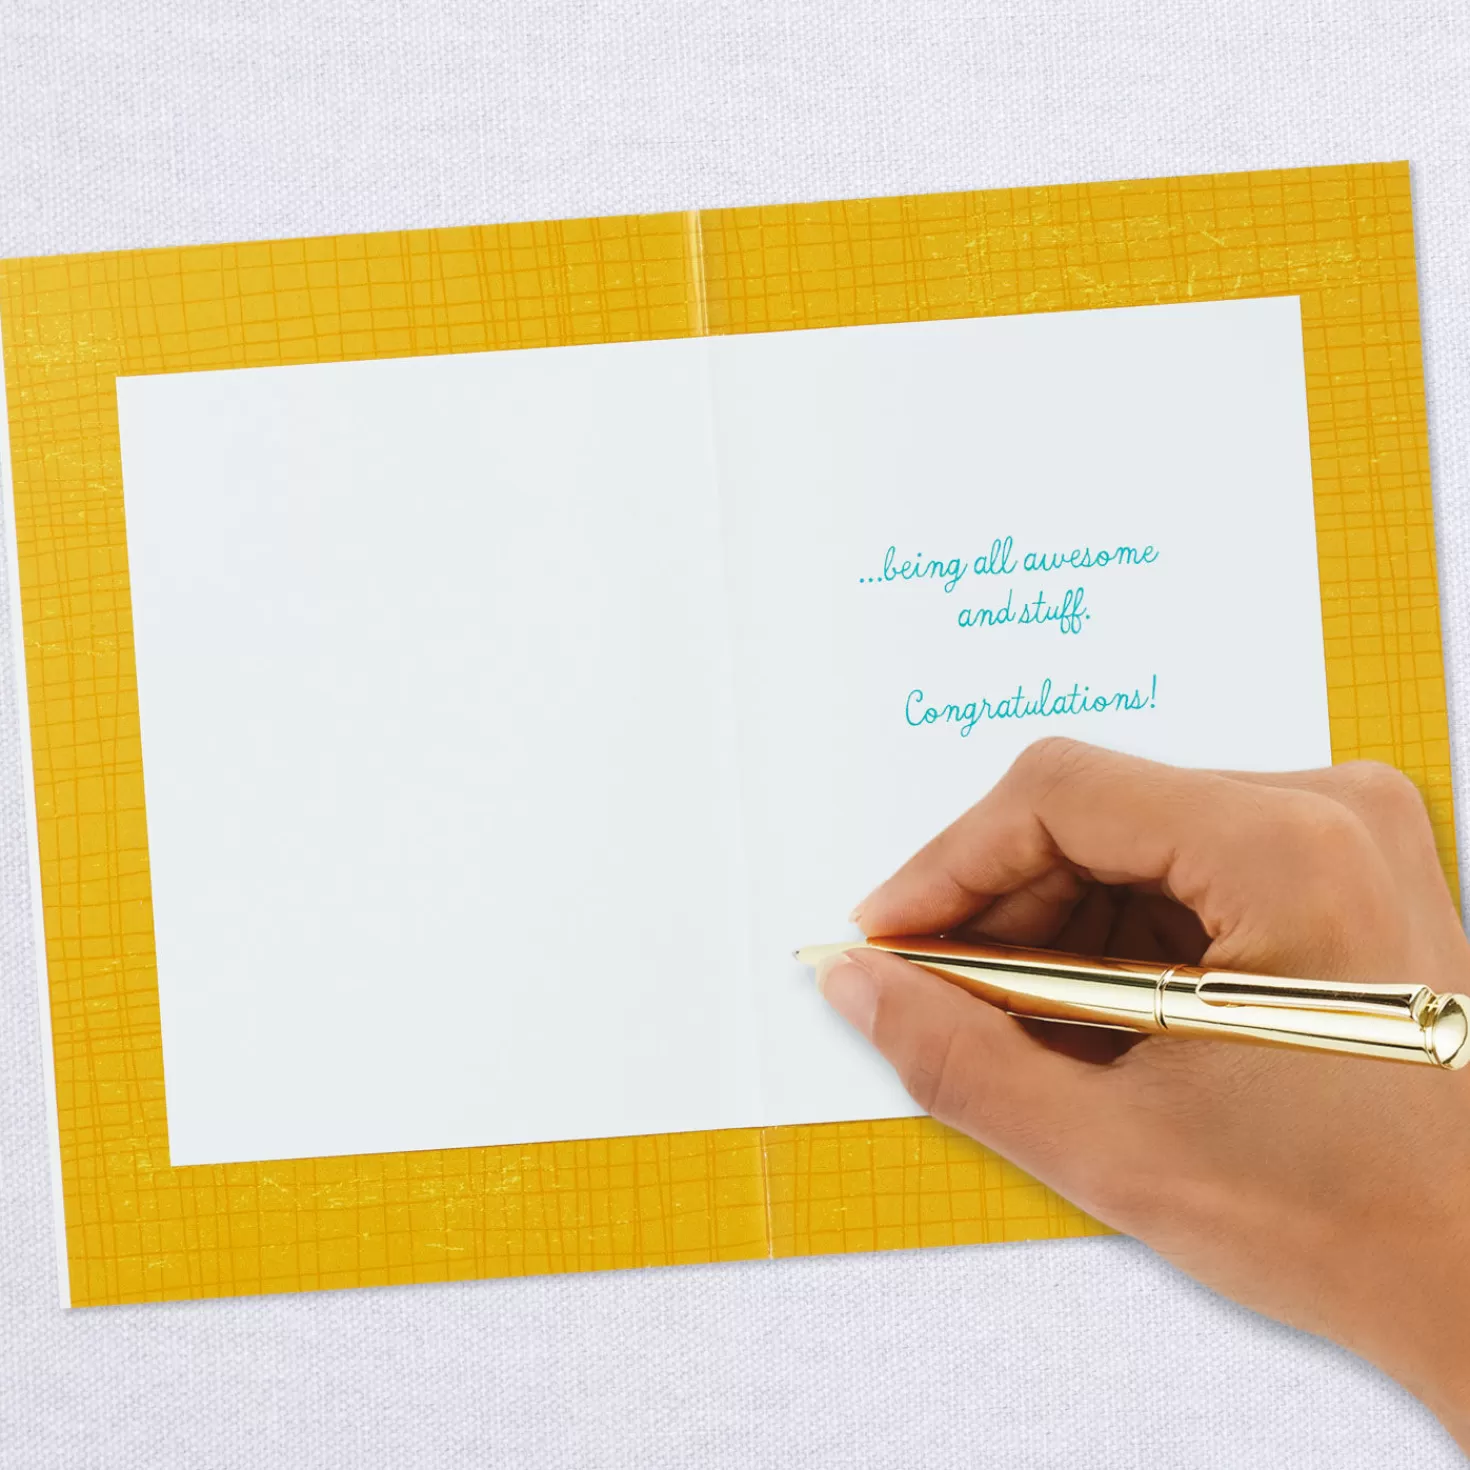 ...being all awesome
and stuff.
Congratulations!